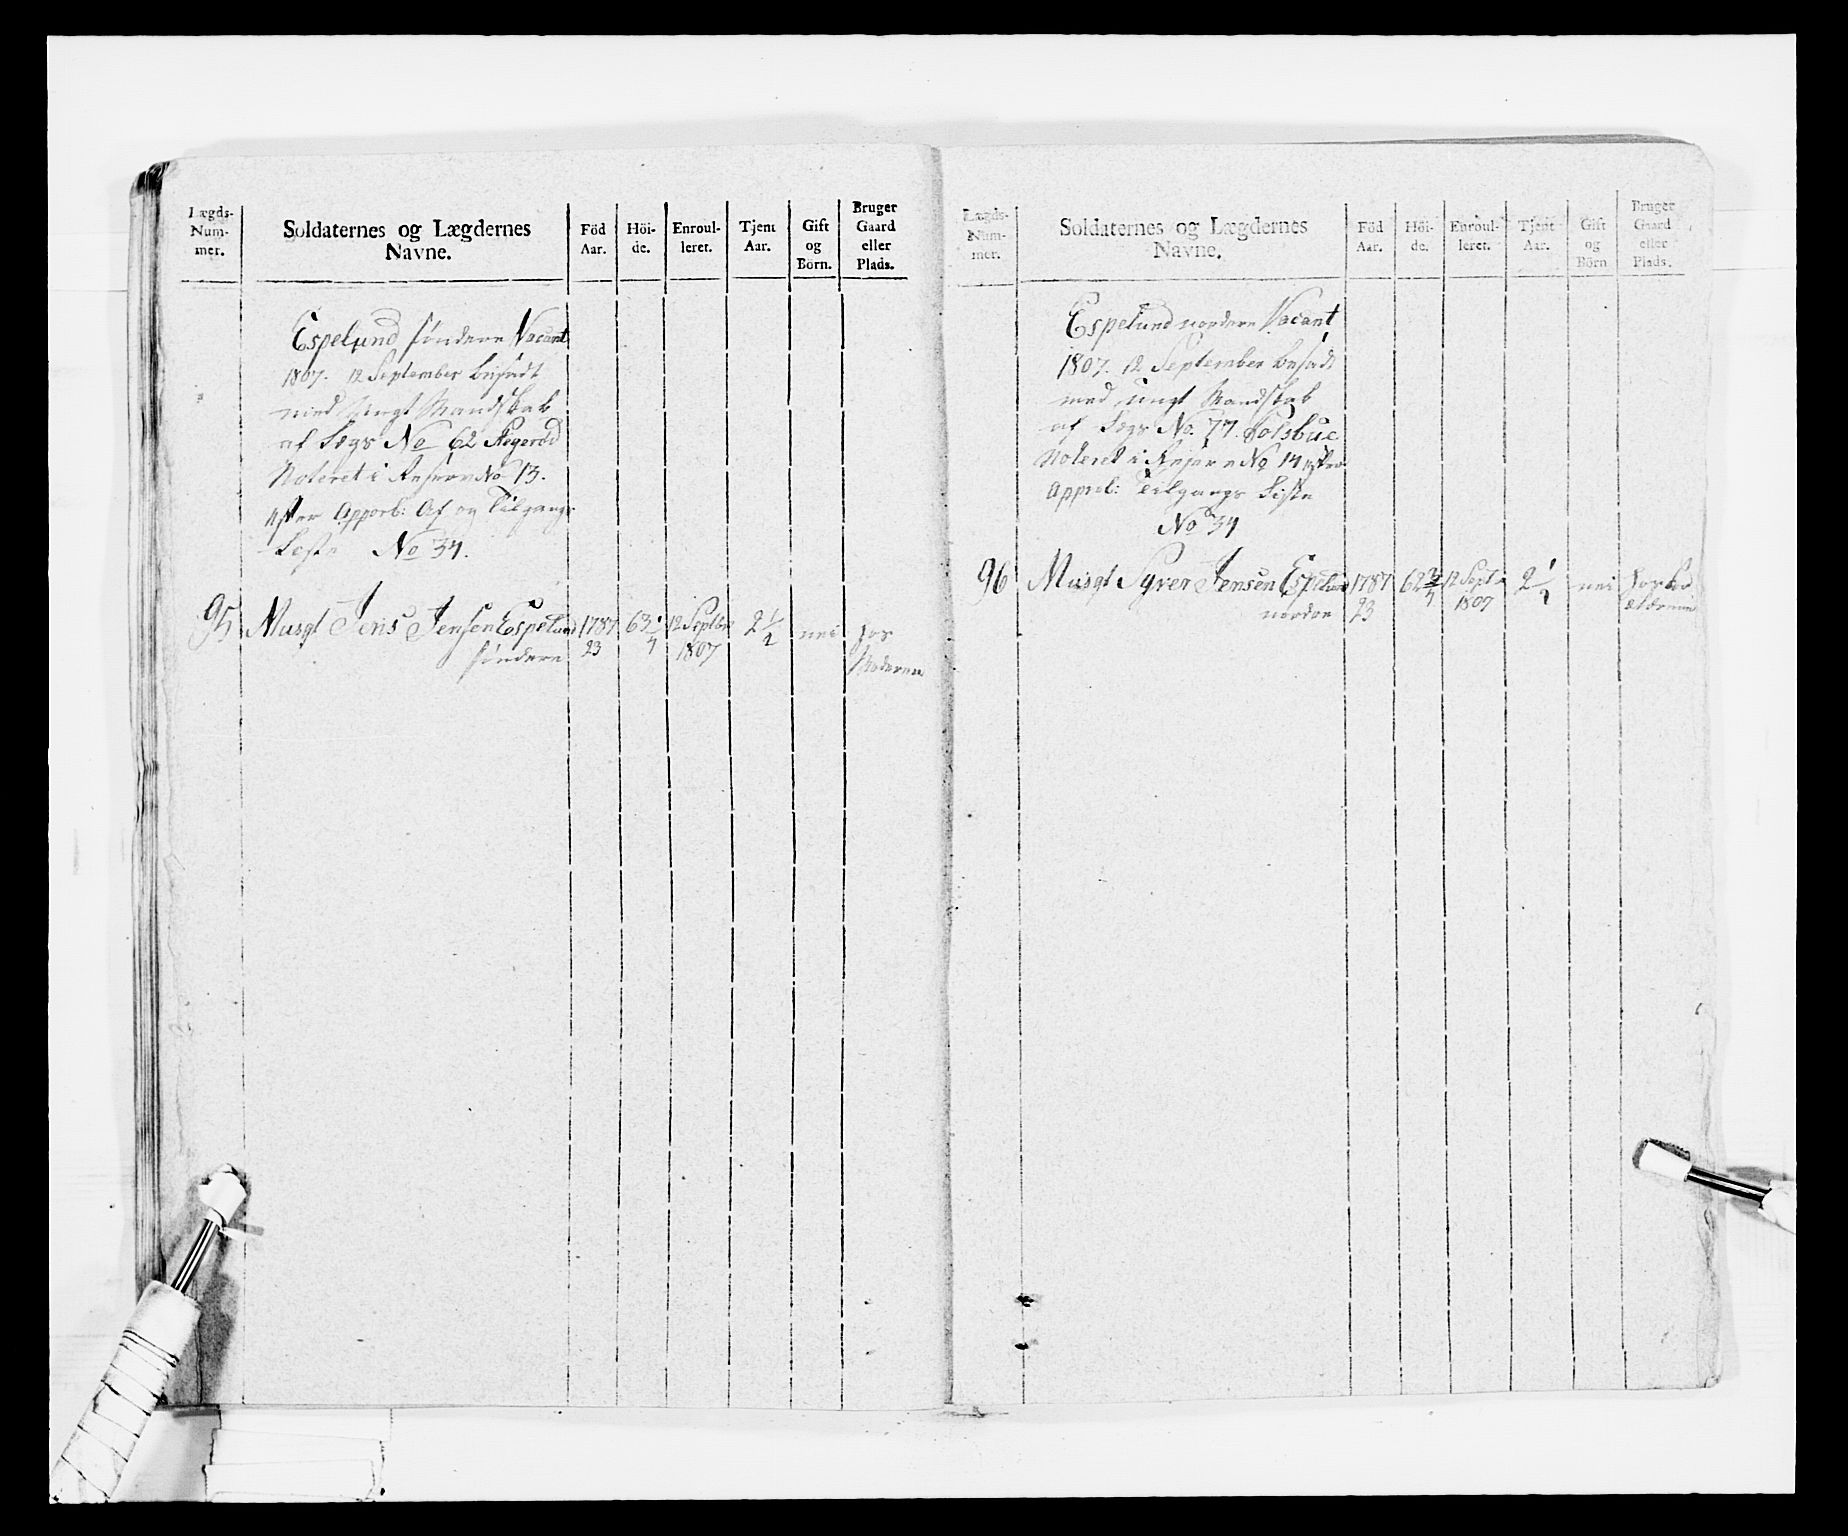 Lægds-
Num-
mer.
Soldaternes og Lægdernes
Navne.
Föd
Aar.
Höi-
de.
Enroul-
leret.
Tjent
Aar.
Gift
og
Börn.
Bruger
Gaard
eller
Plads.
Espelund søndere Vacant
1807. 12 September besadt
med ungt Mandskab
af Lægs No 62 Regeröd
Noteret i Reserve No 13.
efter Approb: Af og Tilgangs
Liste No 34.
95 Musqt Jens Jensen Espelund 1787 63 1/4 12 Septbr 2 1/2 nei hos
søndere 23 1807 Moderen
Lægds-
Num-
mer.
Soldaternes og Lægdernes
Navne.
Föd
Aar.
Höi-
de.
Enroul-
leret.
Tjent
Aar.
Gift
og
Börn
Bruger
Gaard
eller
Plads.
Espelund nordere Vacant
1807. 12 September besadt
med ungt Mandskab
af Lægs No. 77. Holsbue
Noteret i Reserve No 14 efter
Approb: Tilgangs Liste
No 34
96 Musqt Syver Jensen Espelund 1787 62 3/4 12 Septr 2 1/2 nei
nordre 23 1807